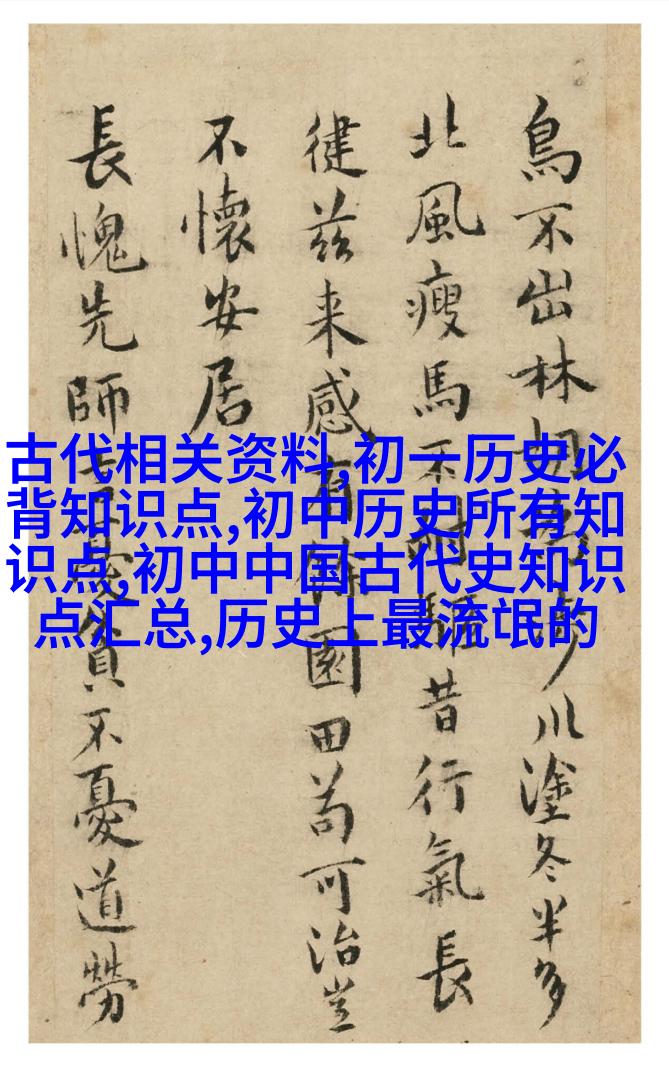 鳥不出林川塗冬半多
北風瘦馬不耐驅昔行氣長
徤茲来感有餘園田苟可治豈
不懷安居
長愧先師憂貧不憂道勞
古代相关资料,初一历史必
背知识点,初中历史所有知
识点,初中中国古代史知识
点汇总,历史上最流氓的